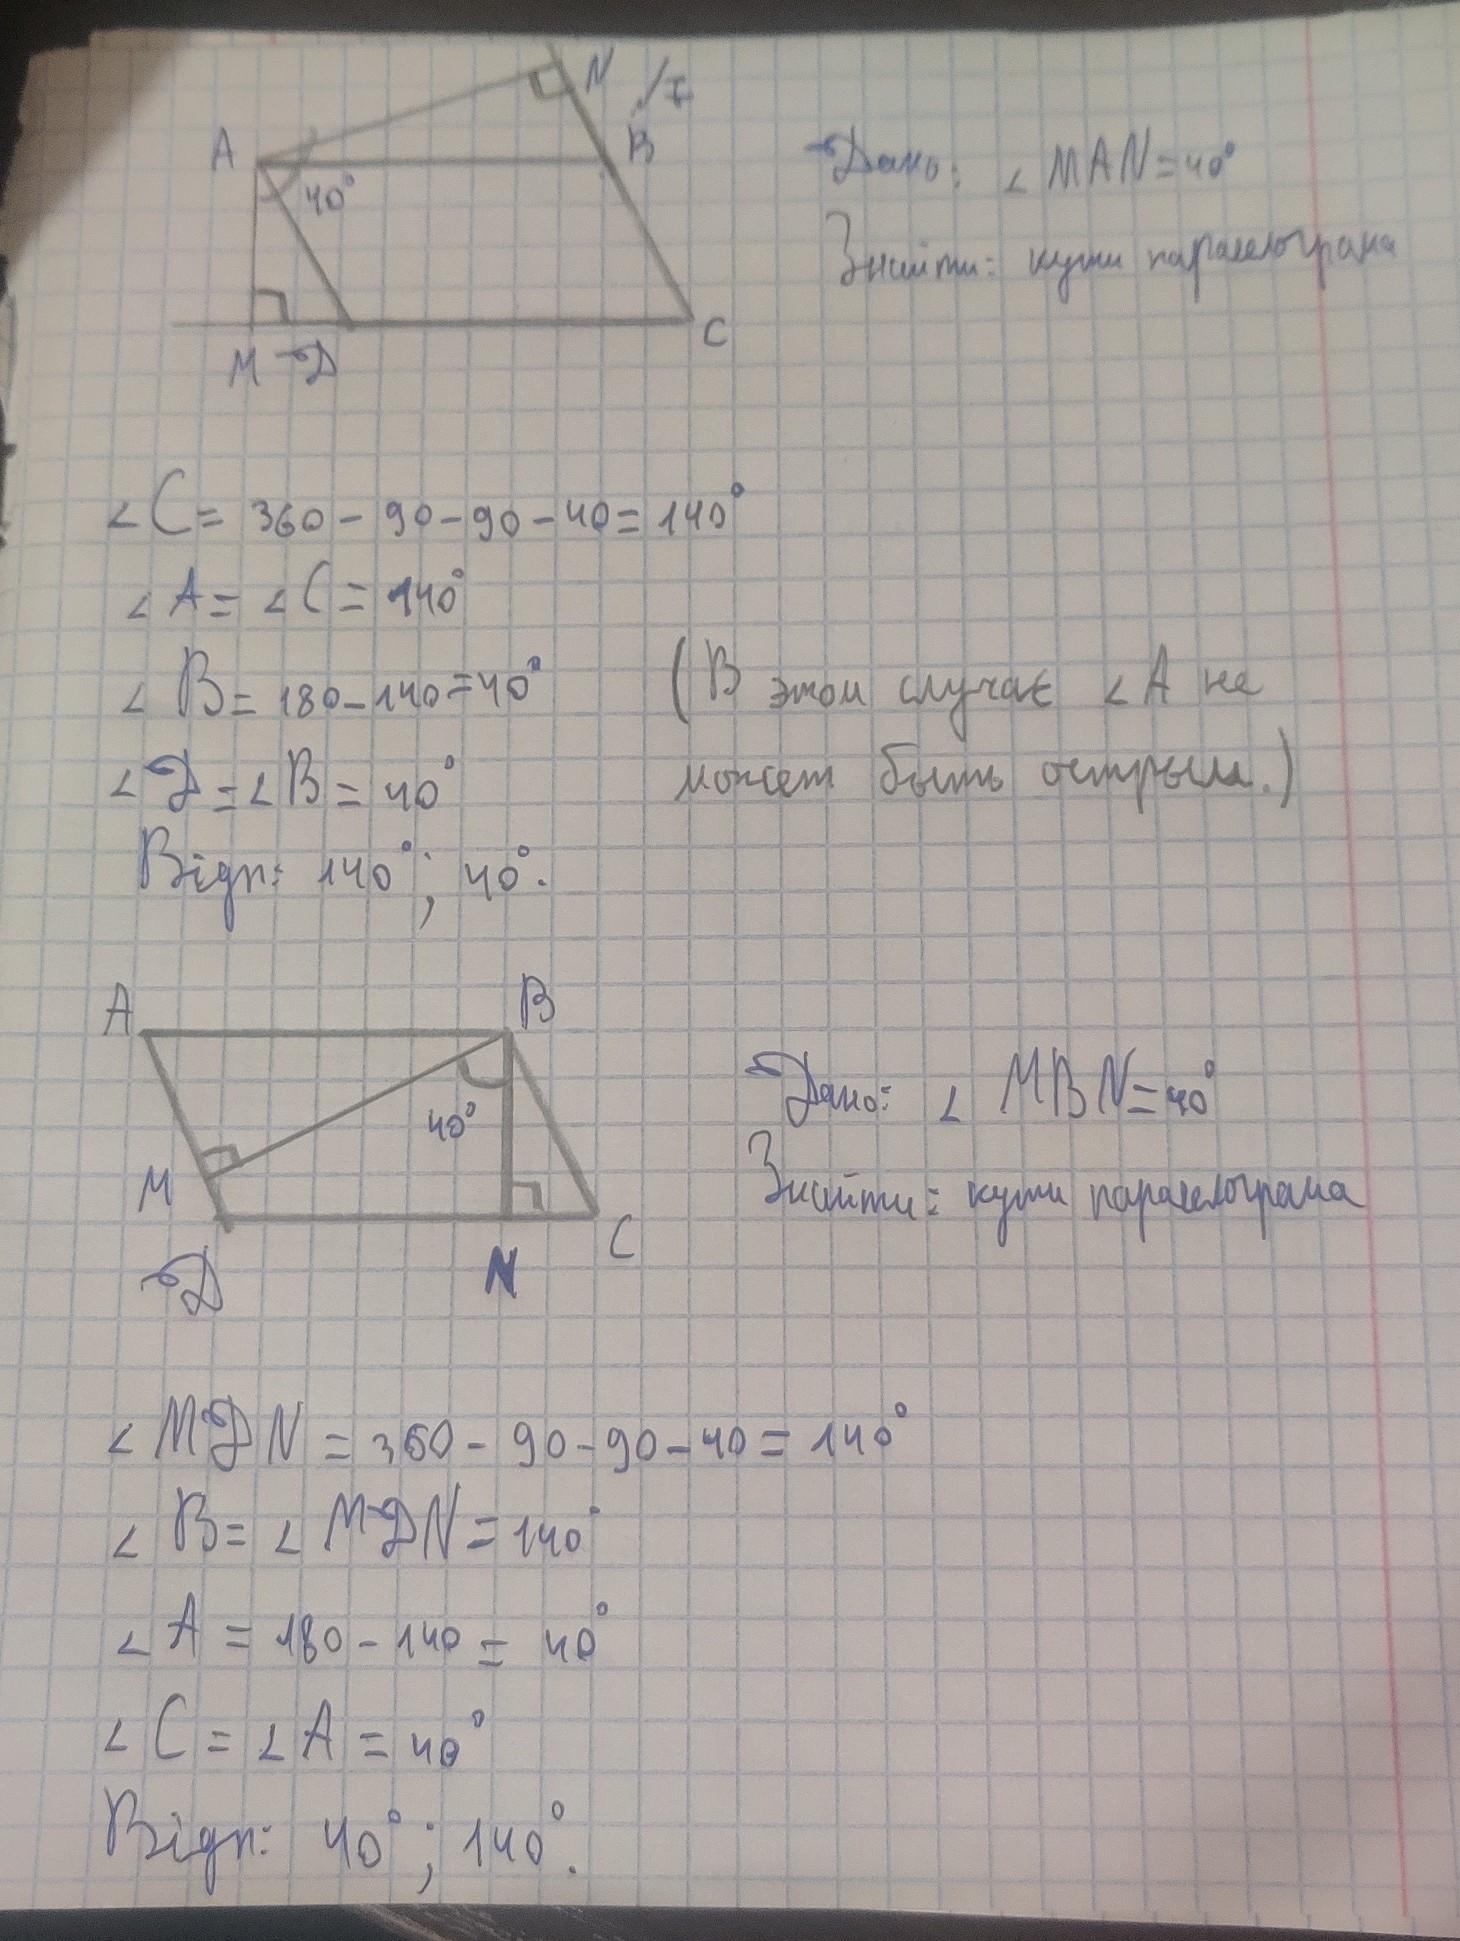 N
A
B
40°
M Д
C
Дано: ∠ MAN = 40°
Знайти: кути паралелограма
∠ C = 360 - 90 - 90 - 40 = 140°
∠ A = ∠ C = 140°
∠ B = 180 - 140 = 40°
∠ Д = ∠ B = 40°
(В этом случає ∠ A не
может быть острым.)
Відп: 140°; 40°.
A
B
40°
M
Д
N
C
Дано: ∠ MBN = 40°
Знайти: кути паралелограма
∠ MДN = 360 - 90 - 90 - 40 = 140°
∠ B = ∠ MДN = 140°
∠ A = 180 - 140 = 40°
∠ C = ∠ A = 40°
Відп: 40°; 140°.